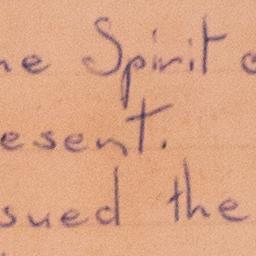 ne Spirit o
esent.
sued the